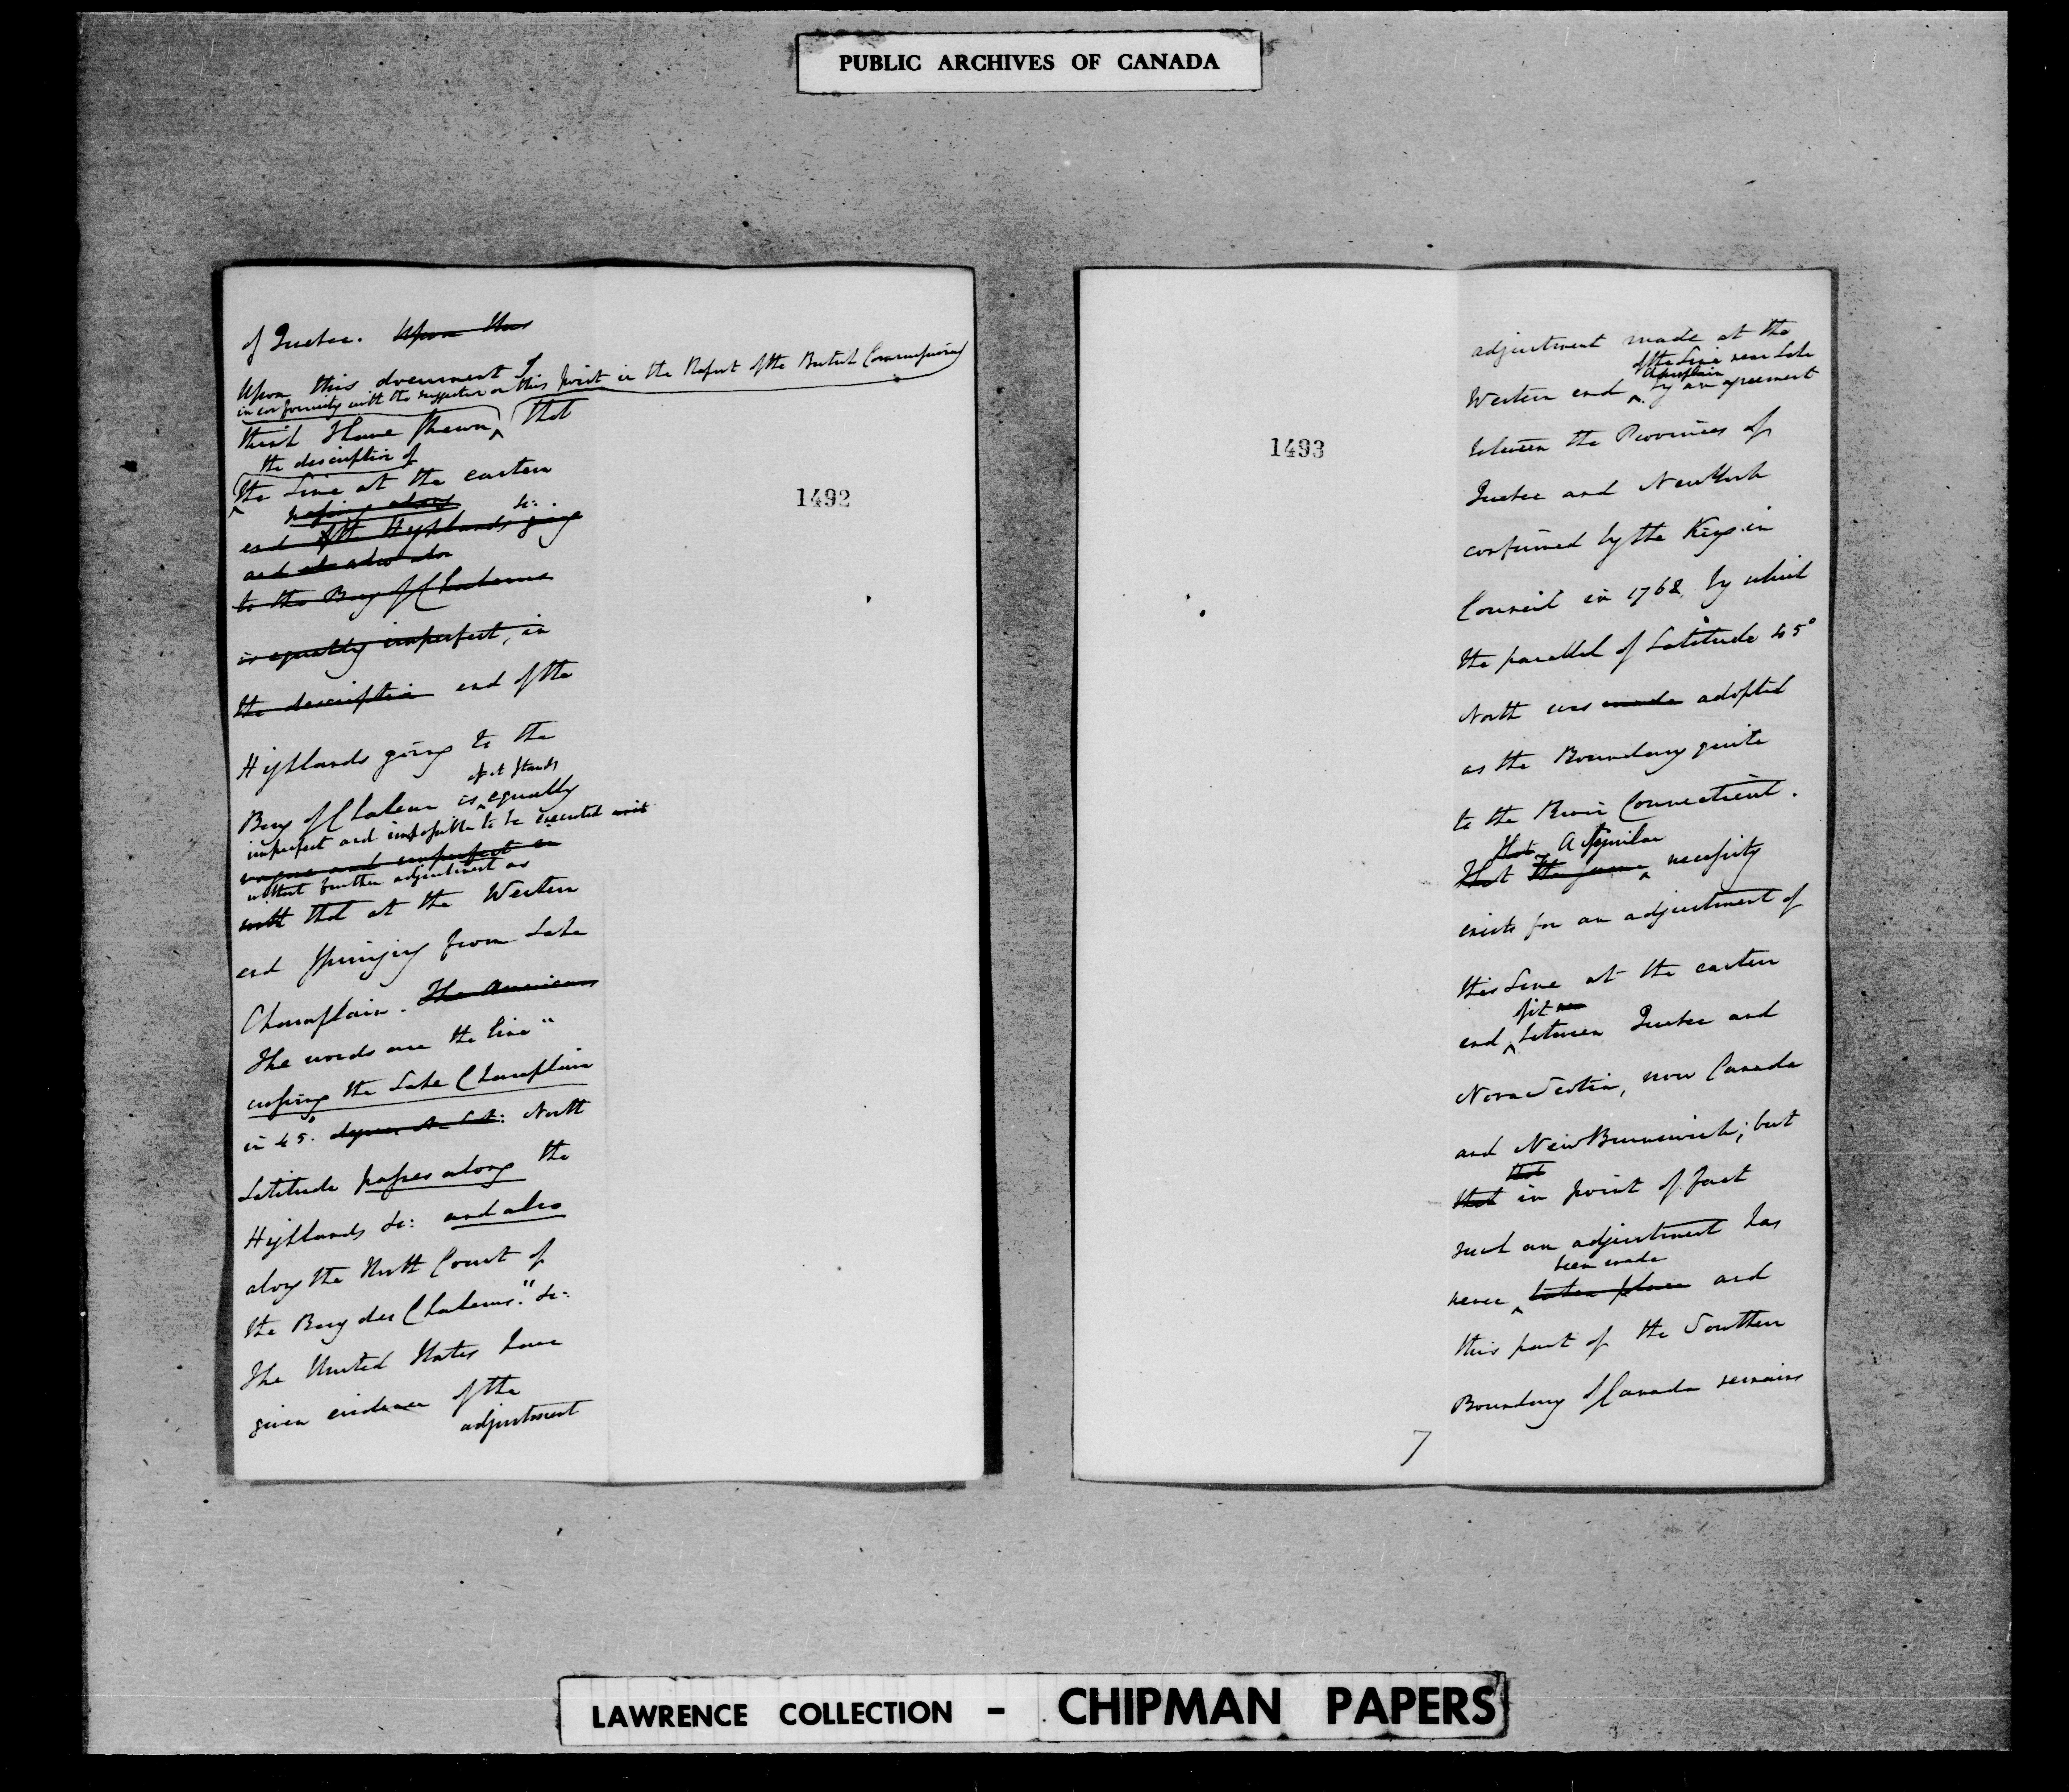 PUBLIC ARCHIVES OF CANADA
of Quebec. Upon this
Upon this document I
in conformity with the suggestion on this point in the Report of the British Commissioner
think I have shewn, that
the description of
the Line at the eastern
passing along &c:
end of the Highlands going
and also
to the Bay of Chaleurs
is equally imperfect, in
the description end of the
Highlands going to the
as it stands
Bay of Chaleur is equally
imperfect and impossible to be executed
vague and imperfect in
without further adjustment as
with that at the Western
end springing from Lake
Champlain. The American
The words are the line "
crossing the Lake Champlain
in 45° degrees N. Lat: North
Latitude passes along the
Highlands &c: and also
along the North Coast of
the Bay des Chaleurs." &c:
The United States have
given evidence of the
adjustment
1492
1493
adjustment made at the
of the Line near Lake
Champlain
Western end by an agreement
between the Provinces of
Quebec and New York
confirmed by the King in
Council in 1768, by which
the parallel of Latitude 45°
North was made adopted
as the Boundary quite
to the River Connecticut.
That A similar
That the same necessity
exists for an adjustment of
this Line at the eastern
of it
end between Quebec and
Nova Scotia, now Canada
and New Brunswick; but
that
that in point of fact
such an adjustment has
been made
never taken place and
this part of the Southern
Boundary of Canada remains
7
LAWRENCE COLLECTION - CHIPMAN PAPERS